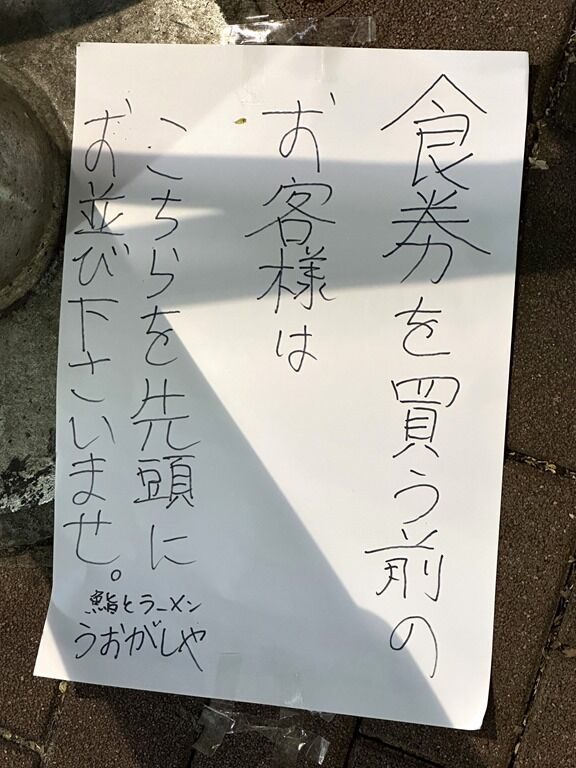 食券を買う前の
お客様は
こちらを先頭に
お並び下さいませ。
鮨とラーメン
うおがしや